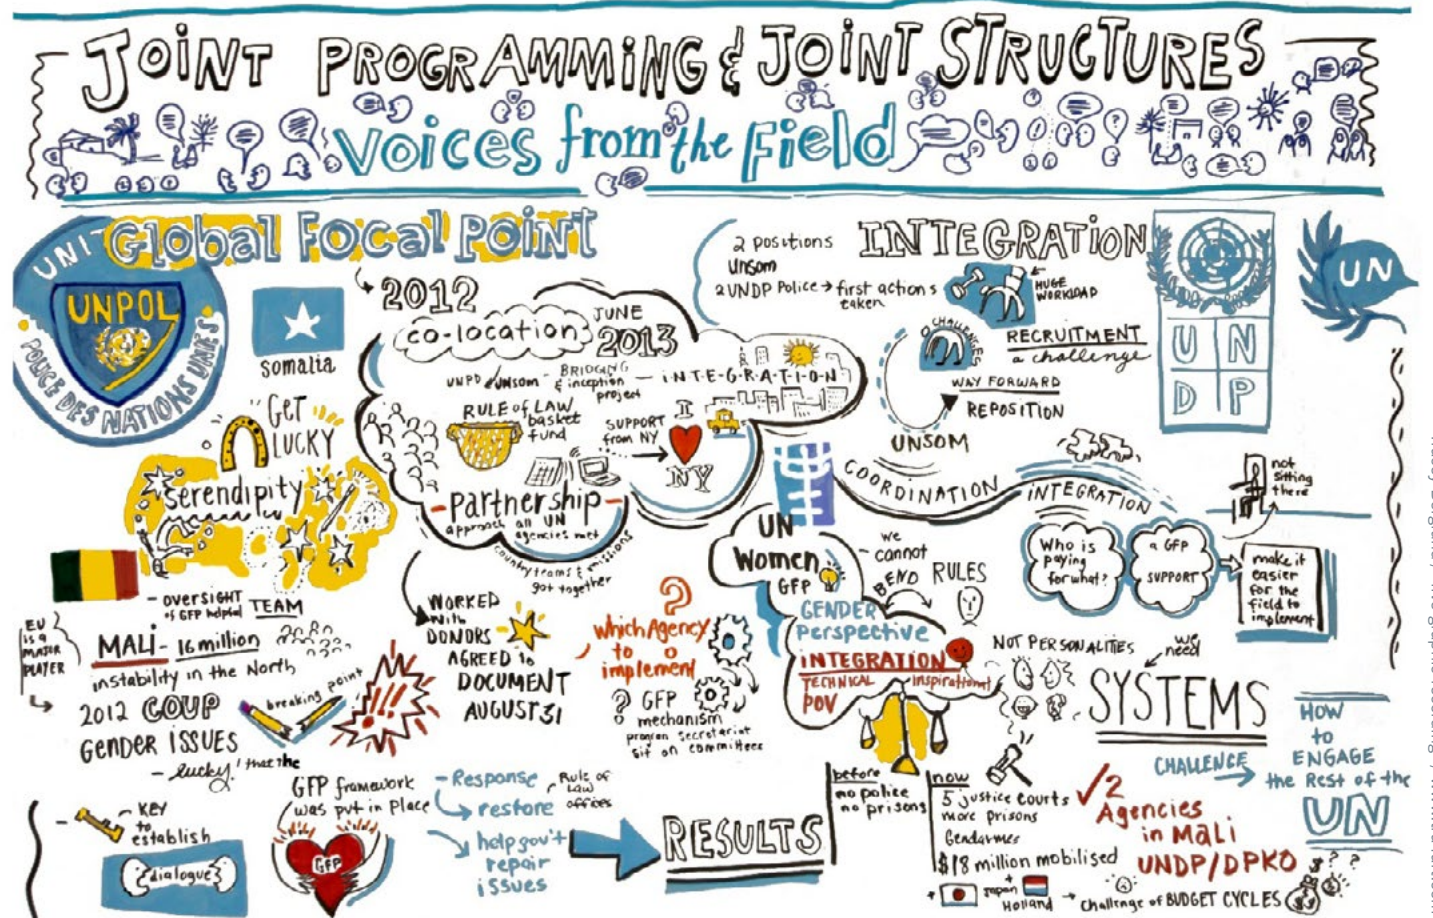 JOINT PROGRAMMING & JOINT STRUCTURES
Voices from the Field
Global Focal Point
UNPOL
POLICE DES NATIONS UNIES
somalia
2012
co-location
JUNE
2013
BRIDGING
& inception
project
I-N-T-E-G-R-A-T-I-O-N
RULE of LAW
basket
fund
SUPPORT
from NY
I
NY
partnership
approach all UN
agencies met
country teams & missions
got together
GET
LUCKY
serendipity
2 positions
Unsom
2 UNDP Police → first actions
taken
INTEGRATION
HUGE
WORKLOAD
CHALLENGES
RECRUITMENT
a challenge
WAY FORWARD
REPOSITION
UNSOM
U N
D P
UN
COORDINATION
INTEGRATION
not
sitting
there
Who is
paying
for what?
a GFP
SUPPORT
make it
easier
for the
field to
implement
UN
Women
GFP
GENDER
Perspective
INTEGRATION
TECHNICAL
POV
inspirational
we
cannot
BEND RULES
NOT PERSONALITIES
we
need
SYSTEMS
CHALLENGE
HOW
to
ENGAGE
the Rest of the
UN
- OVERSIGHT
of GFP helpful TEAM
EU
is a
MAJOR
PLAYER
MALI - 16 million
instability in the North
2012 COUP
Gender ISSUES
- lucky! that the
breaking point
!!!
WORKED
with
DONORS
AGREED to
DOCUMENT
AUGUST 31
?
which Agency
to
implement
? GFP
mechanism
program secretariat
sit on committees
GFP framework
was put in place
GFP
- KEY
to
establish
dialogue
- Response
restore
Rule of
Law
offices
help gov't
repair
issues
RESULTS
before
no police
no prisons
now
5 justice courts
more prisons
Gendarmes
$18 million mobilised
+
+ Japan
Holland
→ challenge of BUDGET CYCLES
2
Agencies
in Mali
UNDP/DPKO
$ ? ?